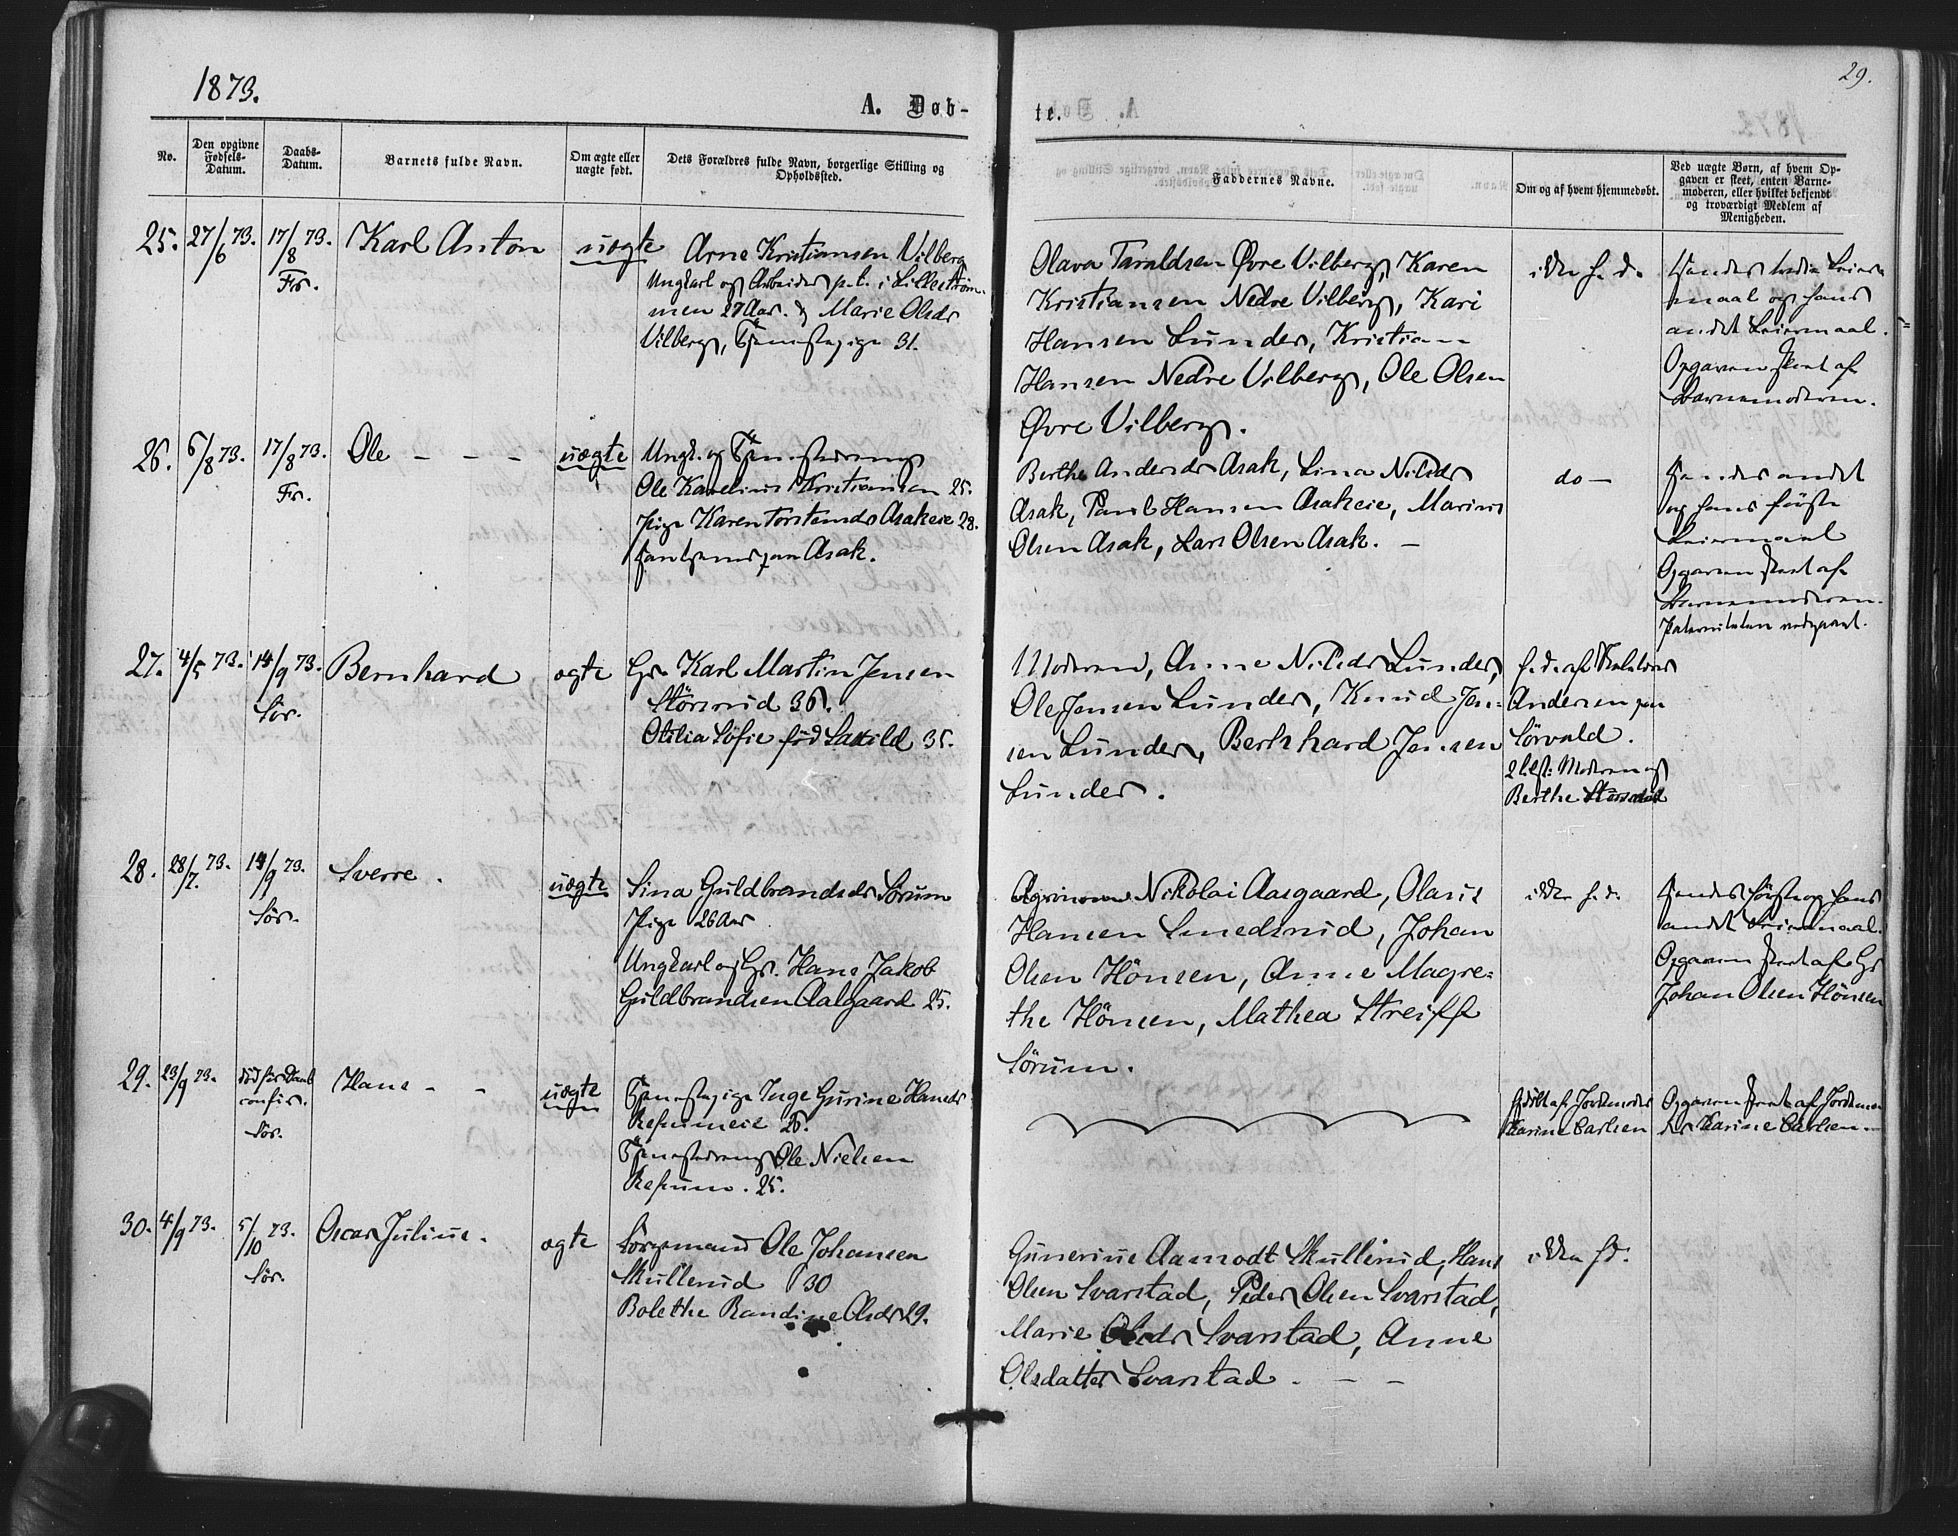 1873.
29.
A. Døb-
te.
No.
Den opgivne Fødsels-Datum.
Daabs-Datum.
Barnets fulde Navn.
Om ægte eller uægte født.
Dets Forældres fulde Navn, borgerlige Stilling og Opholdssted.
Faddernes Navne.
Om og af hvem hjemmedøbt.
Ved uægte Børn, af hvem Opgaven er skeet, enten Barnemoderen, eller hvilket bekjendt og troværdigt Medlem af Menigheden.
25. 27/6 73. 17/8 73. Karl Anton uægte Arne Kristiansen Vilberg
Fr.
Ungkarl og Arbeider p. t. i Lillestrøm-
men 27 Aar. & Marie Olsdr
Vilberg, Tjenestepige 31.
Olava Taraldsen Øvre Vilberg, Karen
Kristiansen Nedre Vilberg, Kari
Hansen Lunder, Kristian
Hansen Nedre Vilberg, Ole Olsen
Øvre Vilberg.
ikke h. d.
Hendes tredie Leier-
maal og hans
andet Leiermaal.
Opgaven skeet af
Barnemoderen.
26. 6/8 73. 17/8 73. Ole - - - uægte Ungk. og Tjenestedreng
Fr.
Ole Karelius Kristiansen 25.
Pige Karen Torstensdr Asakeie 28.
Berthe Andersdr Asak, Lina Nilsdr
Asak, Paul Hansen Asakeie, Marius
Olsen Asak, Lars Olsen Asak. -
do -
Hendes andet
og hans første
Leiermaal
Opgaven skeet af
Barnemoderen.
Paterniteten vedgaaet.
27. 4/5 73. 14/9 73. Bernhard ægte Gr. Karl Martin Jensen
Sör.
Störsrud 36.
Otilia Sofie född Laxild 35.
Moderen, Anne Nilsdr Lunder,
Ole Jensen Lunder, Knud Jen-
sen Lunder, Bernhard Jensen
Lunder.
h. d. af
Andersen paa
Sörvald.
Moderen og
Berthe
28. 28/7. 73. 14/9 73. Sverre. uægte Sina Guldbrandsdr Sörum
Sör.
Pige 26 Aar
Ungkarl og Gr. Hans Jakob
Guldbrandsen Aalgaard 25.
Nikolai Aasgaard, Olaus
Hansen Smedsrud, Johan
Olsen Hönsen, Anne Magre-
the Hönsen, Mathea Streiff
Sörum.
ikke h. d.
Hendes første og hans
andet Leiermaal.
Opgaven skeet af Gr
Johan Olsen Hönsen
29. 23/9 73. død før Daab Hans - - uægte Tjenestepige Inge Gurine Hansdr
Sör.
26.
Tjenestedreng Ole Nielsen
25.
hjdøbt af Jordemoder
Karine Carlsen
Opgaven skeet af Jordemo-
der Karine Carlsen. -
30. 4/9 73. 5/10 73. Oscar Julius. ægte Ole Johansen
Sör.
Skullerud 30
Bolethe Randine Olsdr 29.
Gunerius Aamodt Skullerud, Hans
Olsen Svarstad, Peder Olsen Svarstad,
Marie Olsdr Svarstad, Anne
Olsdatter Svarstad. - -
ikke hd.